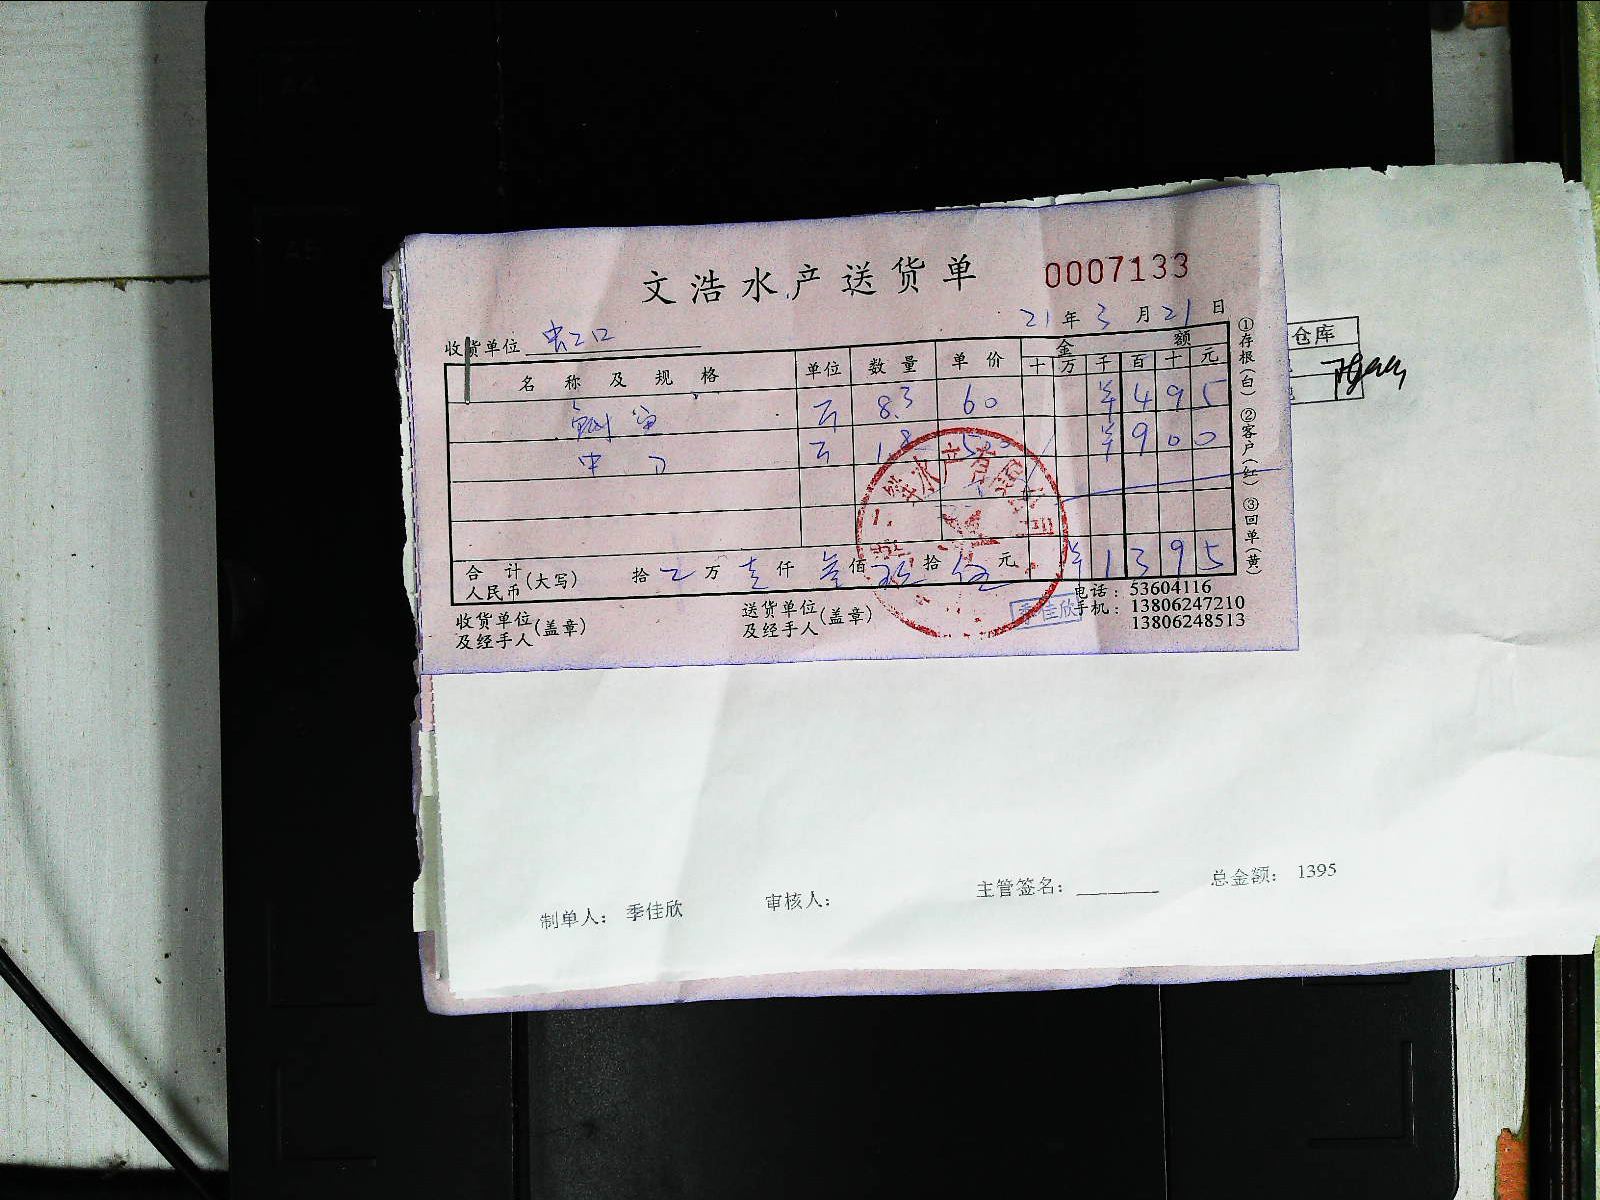 文浩水产送货单 0007133
21年3月21日
收货单位 虹口
名称及规格 单位 数量 单价 金额
十 万 千 百 十 元
鲥鱼 斤 8.3 60 ¥495
中刀 斤 1.8 500 ¥900
合计人民币(大写) 拾 万 壹仟 叁佰 玖拾 伍元 ¥1395
收货单位及经手人(盖章)
送货单位及经手人(盖章)
季佳欣
电话：53604116
手机：13806247210
13806248513
①存根(白) ②客户(红) ③回单(黄)
仓库
制单人： 季佳欣 审核人： 主管签名： 总金额： 1395